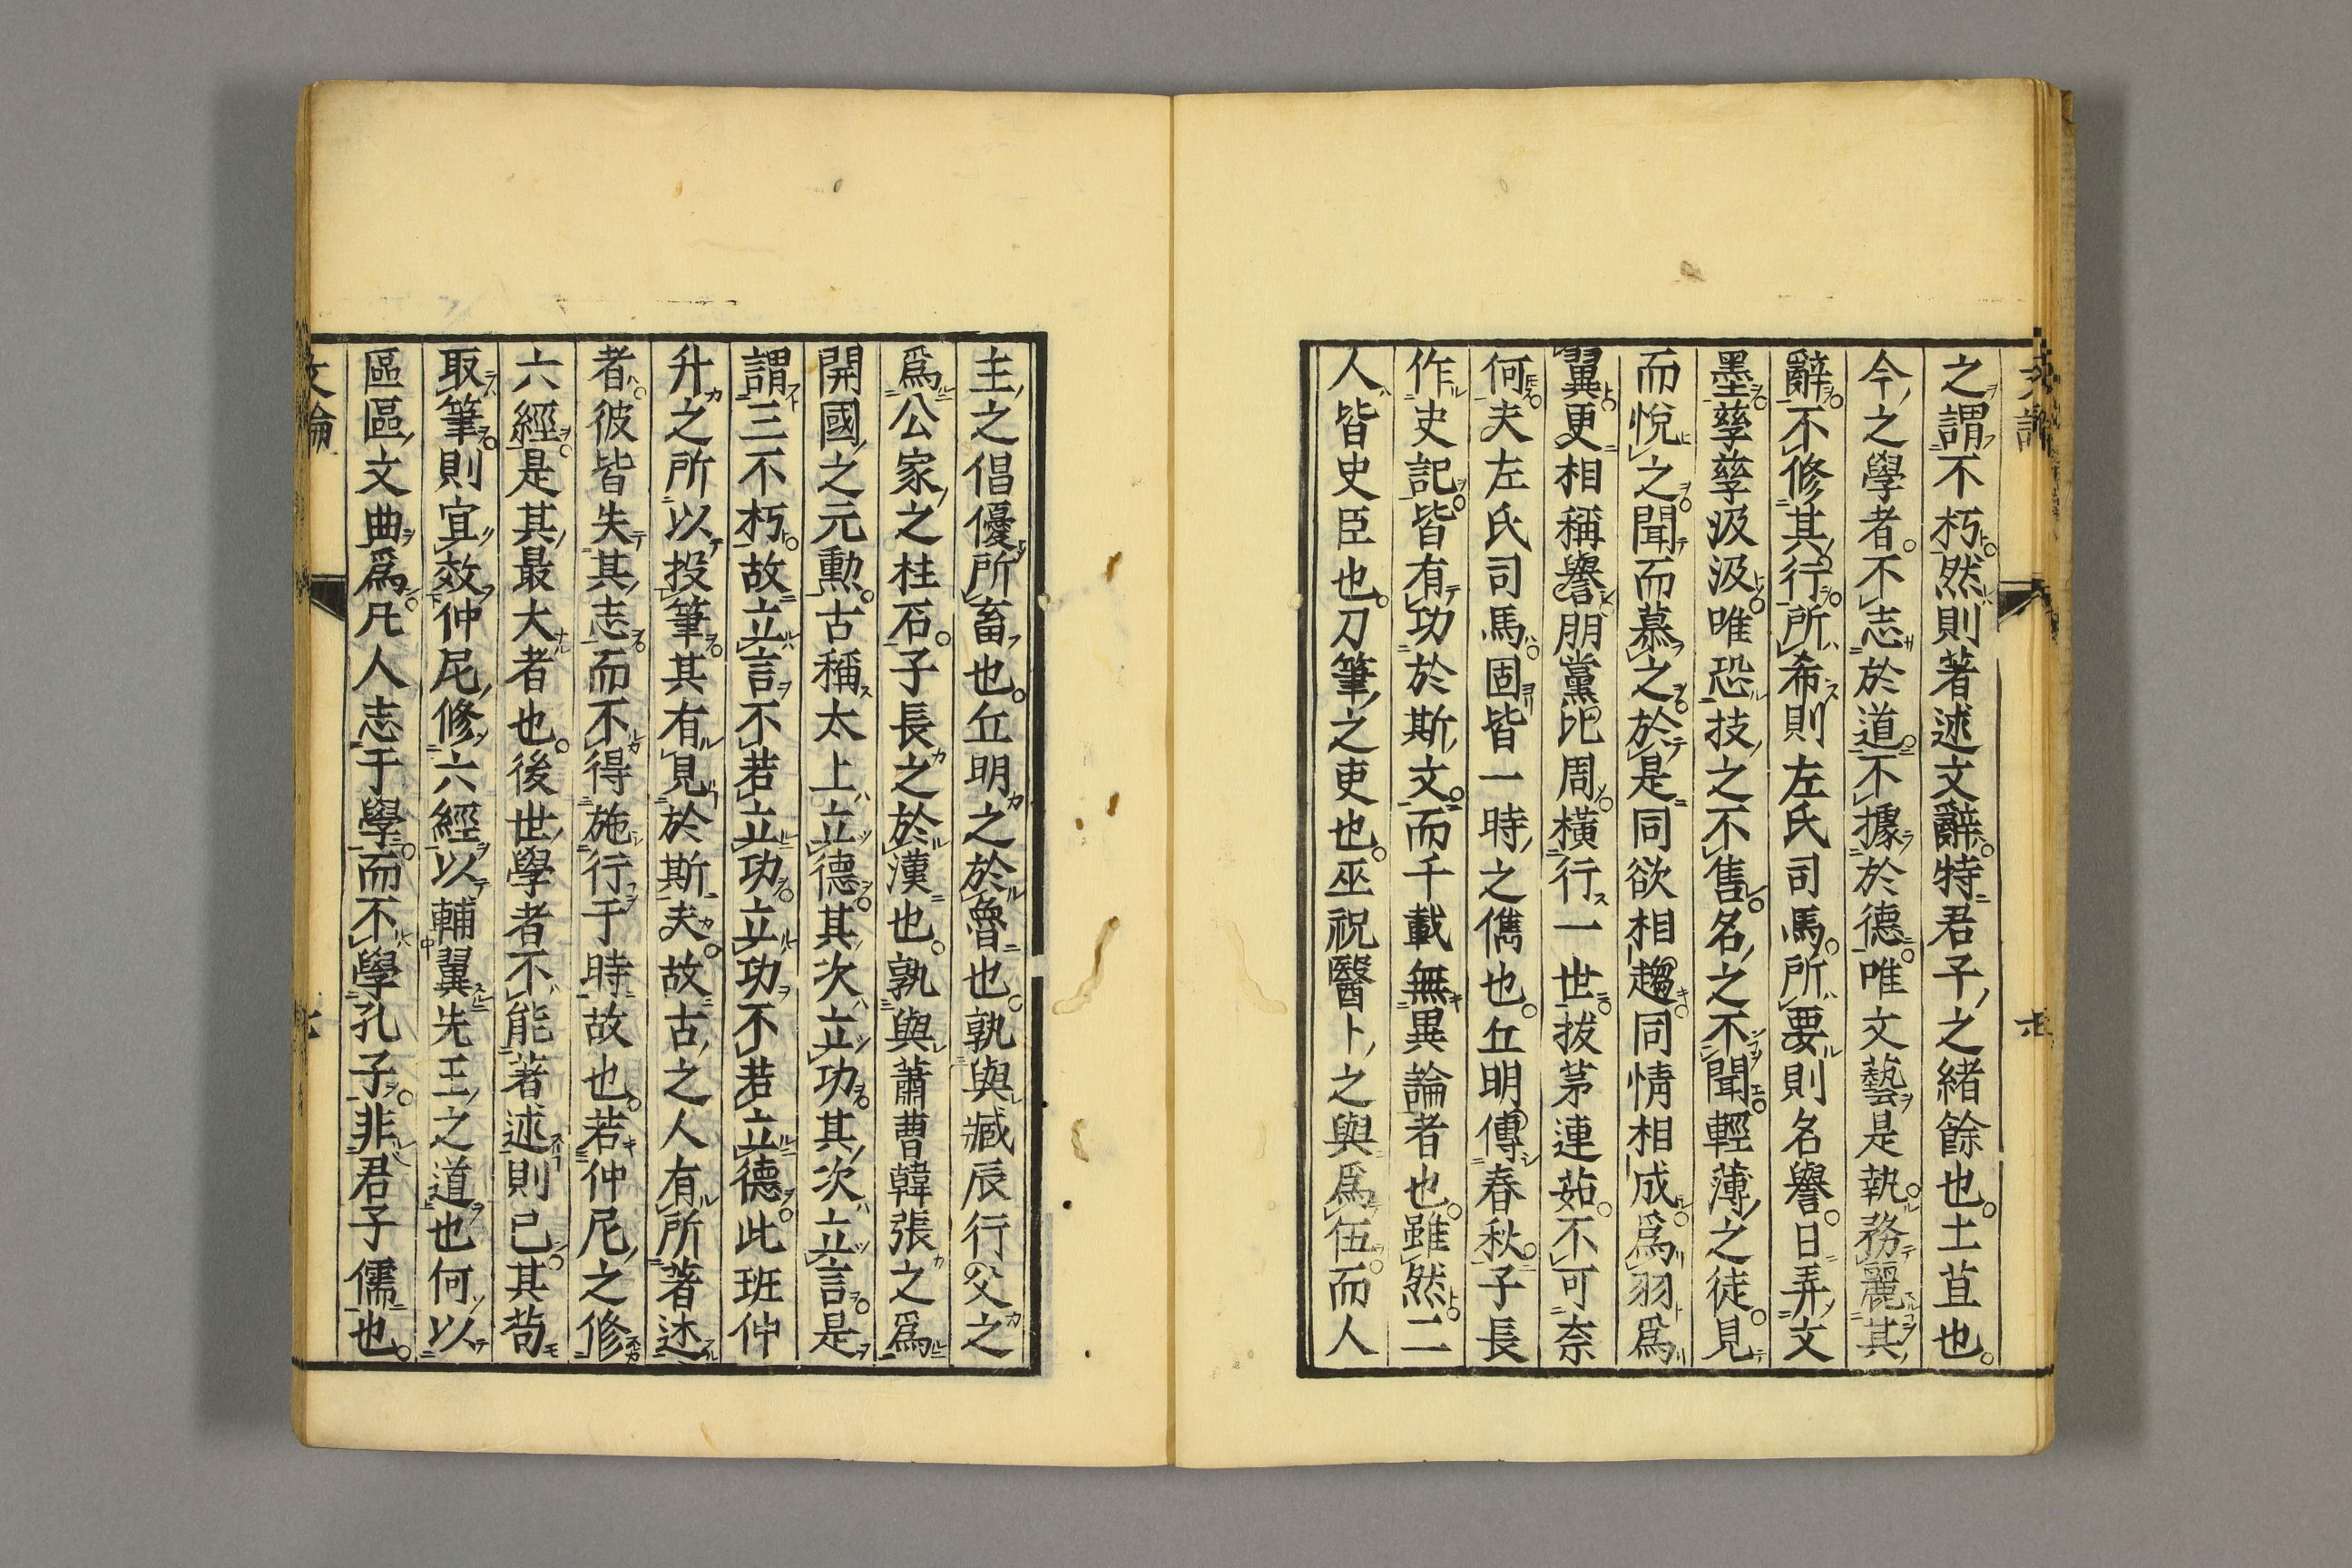 之謂不朽然則著述文辭特君子之緒餘也土苴也
今之學者不志於道不據於德唯文藝是執務麗其
辭不修其行所希則左氏司馬所要則名譽日弄文
墨孳孳汲汲唯恐技之不售名之不聞輕薄之徒見
而悅之聞而慕之於是同欲相趨同情相成爲羽爲
翼更相稱譽朋黨比周橫行一世拔茅連茹不可柰
何夫左氏司馬固皆一時之儁也丘明傳春秋子長
作史記皆有功於斯文而千載無異論者也雖然二
人皆史臣也刀筆之吏也巫祝醫卜之與爲伍而人
主之倡優所畜也丘明之於魯也孰與臧辰行父之
爲公家之柱石子長之於漢也孰與蕭曹韓張之爲
開國之元勳古稱太上立德其次立功其次立言是
謂三不朽故立言不若立功立功不若立德此班仲
升之所以投筆其有見於斯夫故古之人有所著述
者彼皆失其志而不得施行于時故也若仲尼之修
六經是其最大者也後世學者不能著述則已其苟
取筆則宜效仲尼修六經以輔翼先王之道也何以
區區文曲爲凡人志于學而不學孔子非君子儒也
文論